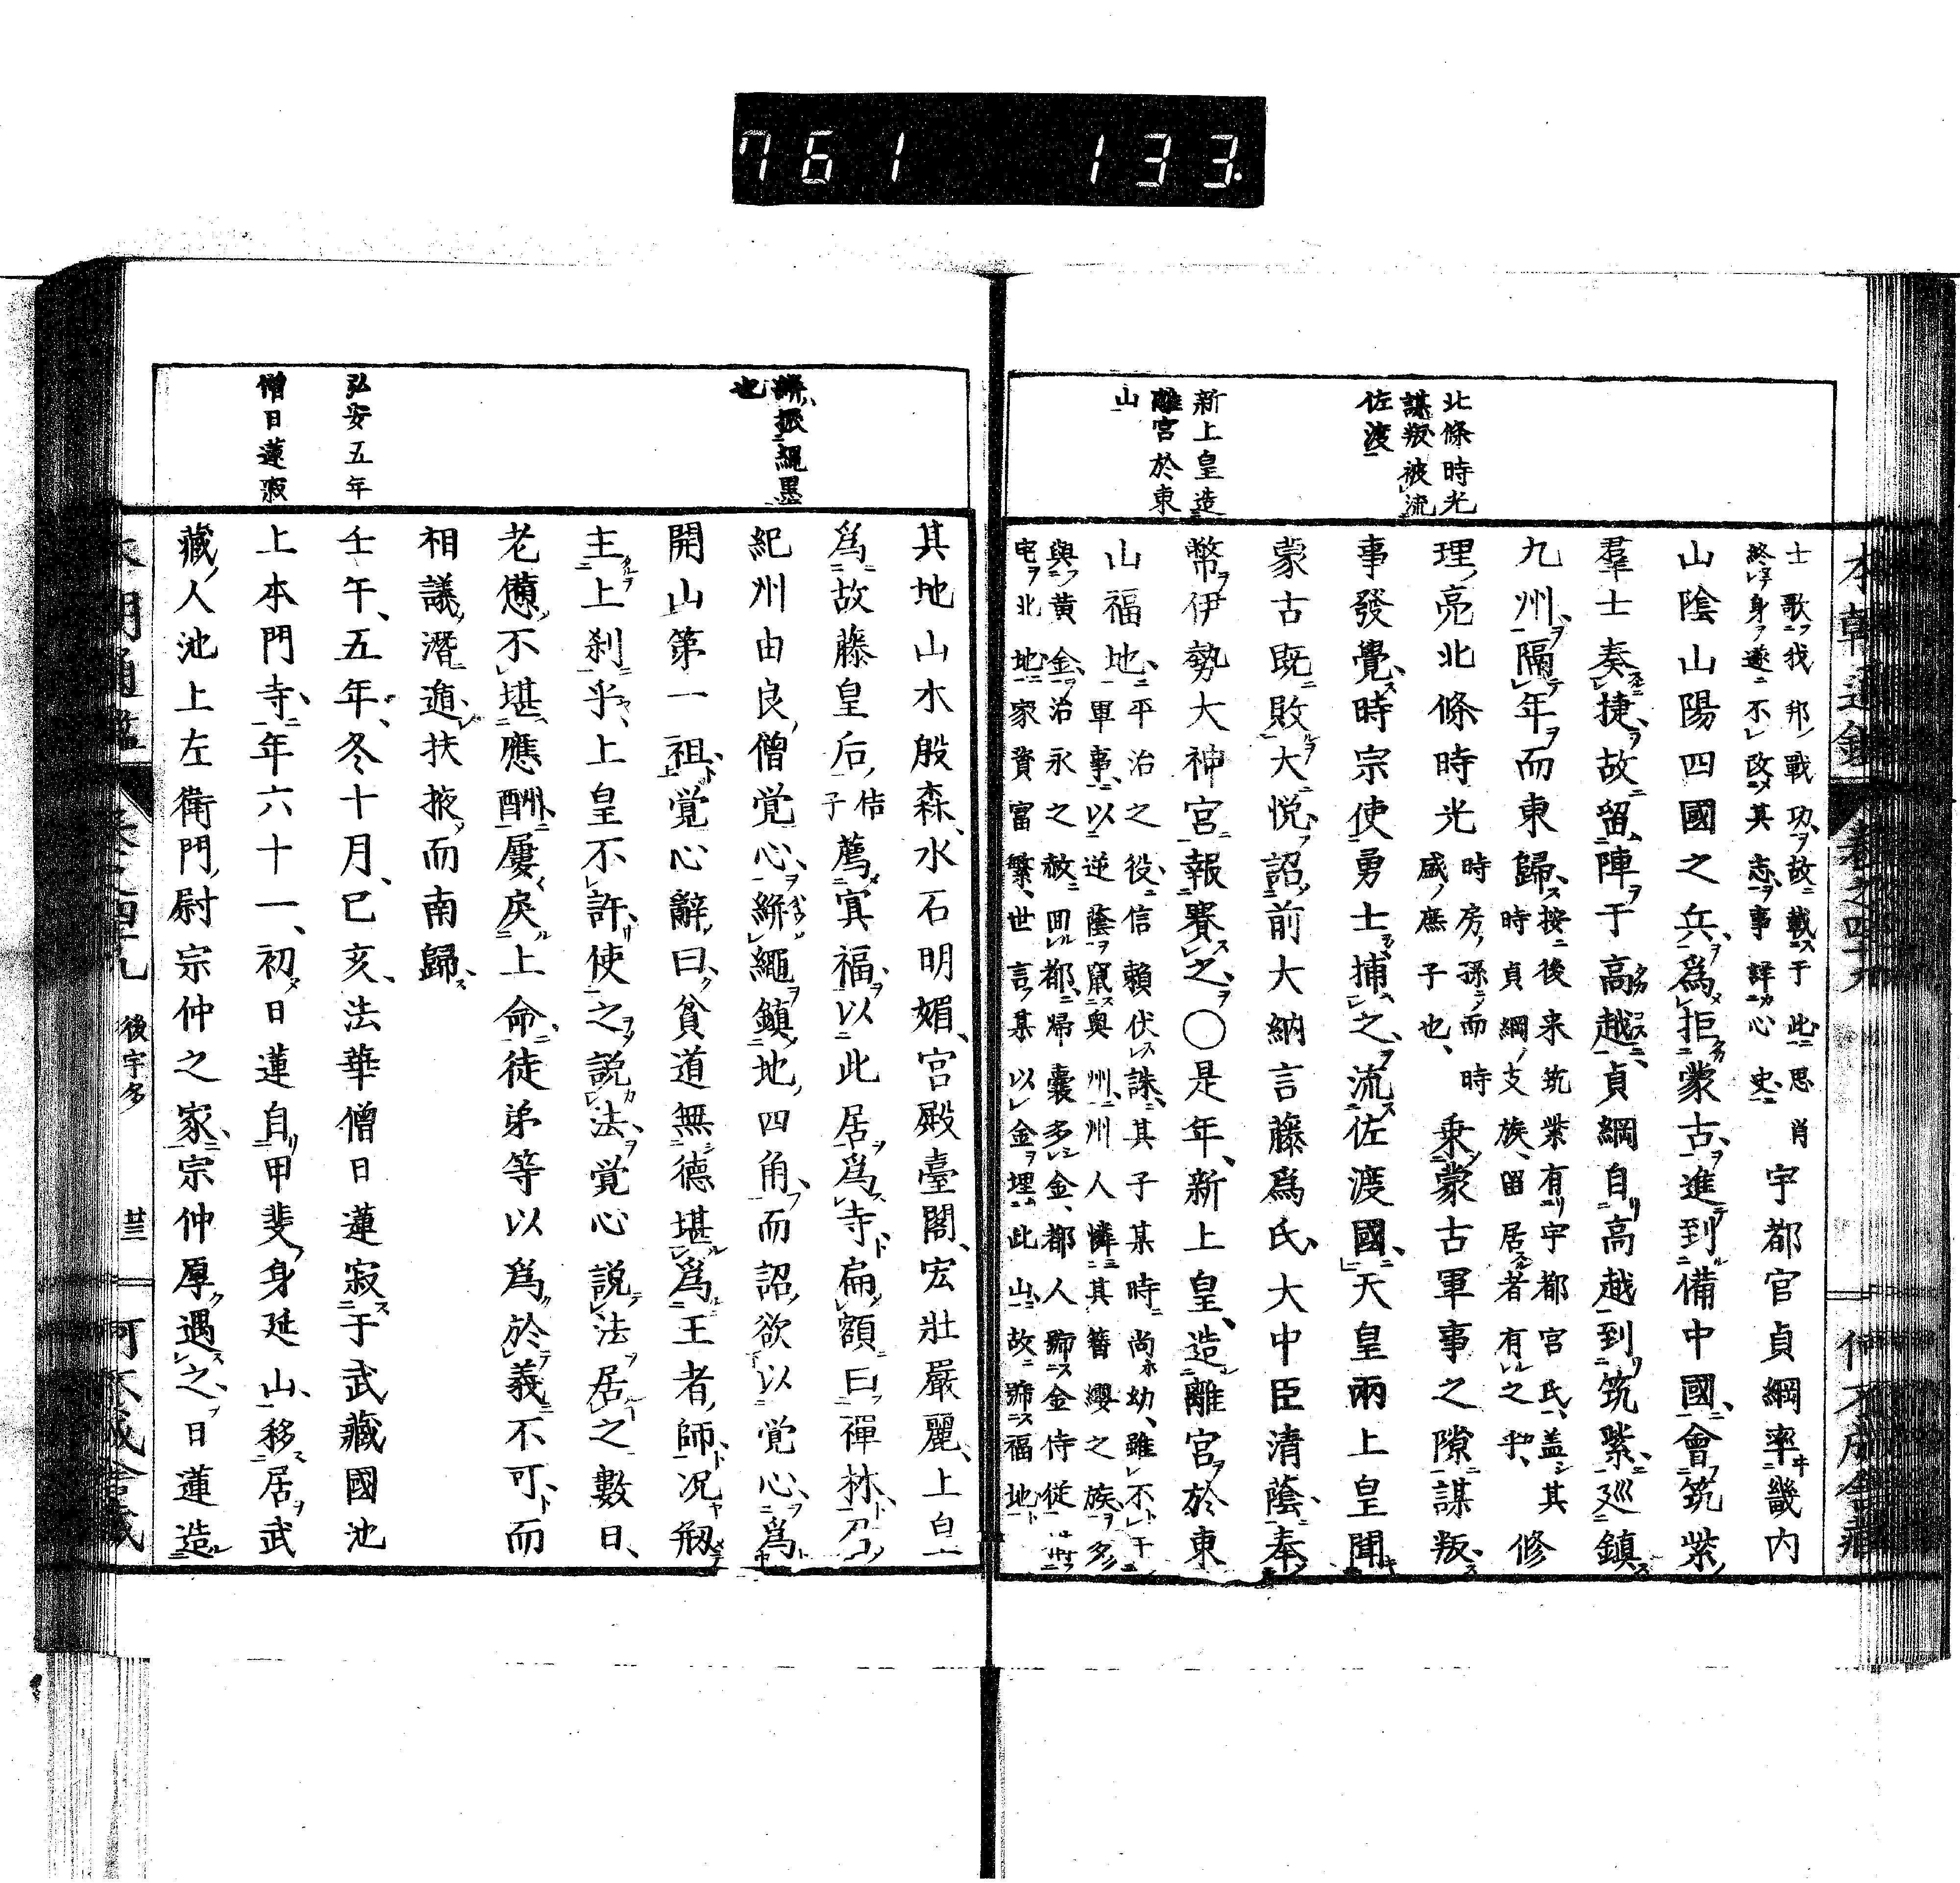 761 133
本朝通鑑 卷之四十九
北條時光
謀叛被流
佐渡
新上皇造
離宮於東
山
士歌我邦戰功故載于此思肖
終身遂不改其志事詳心史
宇都宮貞綱率畿内
山陰山陽四國之兵爲拒蒙古進到備中國會筑紫
羣士奏捷故留陣于高越貞綱自高越到筑紫巡鎮
九州隔年而東歸
按後来筑紫有宇都宮氏盖其
時貞綱支族留居者有之乎
修
理亮北條時光
時房孫而時
盛庶子也
乗蒙古軍事之隙謀叛
事發覺時宗使勇士捕之流佐渡國天皇兩上皇聞
蒙古既敗大悦詔前大納言藤爲氏大中臣清蔭奉
幣伊勢大神宮報賽之〇是年新上皇造離宮於東
山福地
平治之役信賴伏誅其子某時尚幼雖不干
軍事以逆蔭竄奥州州人憐其簪纓之族多
與黄金治永之赦回都歸囊多金都人號金侍従
宅北地家資富繁世言某以金埋此山故號福地
絣振繩墨
也
弘安五年
僧日蓮寂
其地山水殷森水石明媚宮殿臺閣宏壯嚴麗上皇
爲故藤皇后
佶
子
薦冥福以此居爲寺扁額曰禪林乃
紀州由良僧覚心絣繩鎮地四角而詔欲以覚心爲
開山第一祖覚心辭曰貧道無德堪爲王者師况剏
主上刹乎上皇不許使之説法覚心説法居之數日
老憊不堪應酬屢戻上命徒弟等以爲於義不可而
相議潛遁扶掖而南歸
壬午五年冬十月己亥法華僧日蓮寂于武藏國池
上本門寺年六十一初日蓮自甲斐身延山移居武
藏人池上左衛門尉宗仲之家宗仲厚遇之日蓮造
後宇多